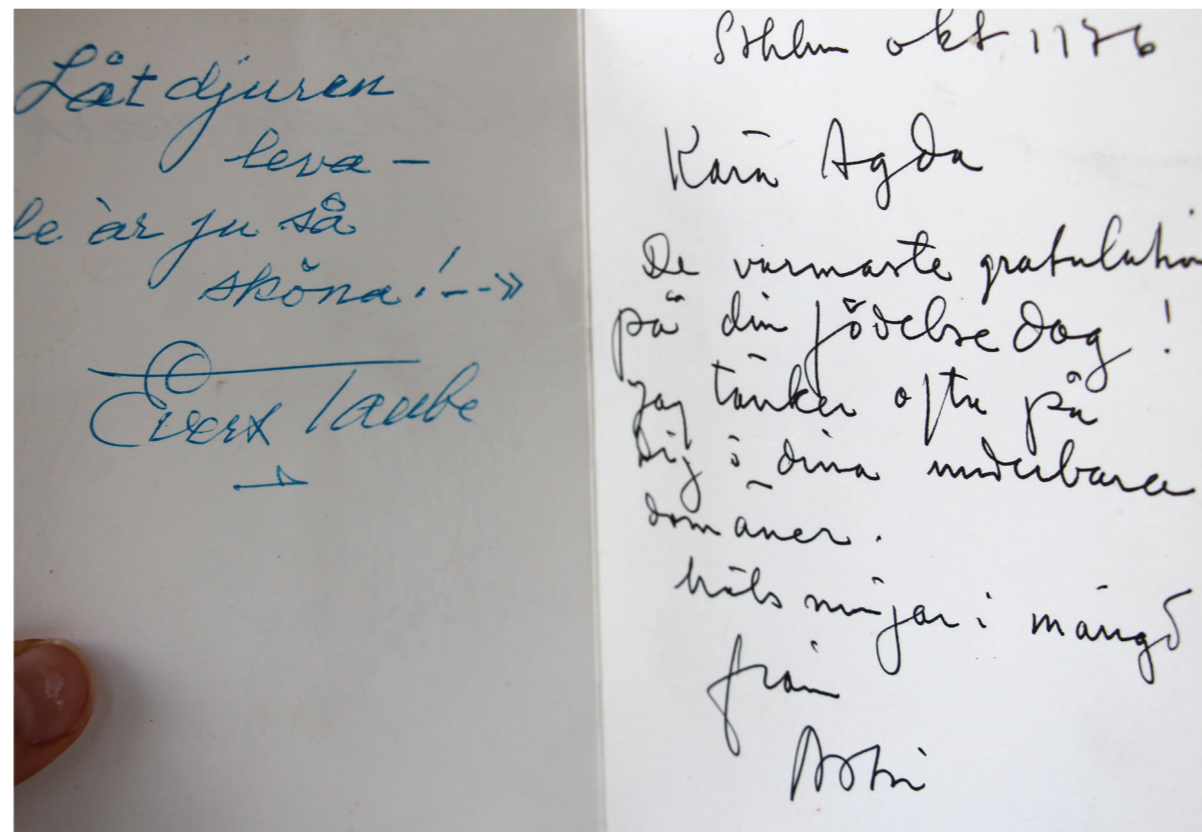 Låt djuren
leva –
de är ju så
sköna! -->>
Evert Taube
Sthlm okt 1976
Kära Agda
De varmaste gratulation
på din födelsedag!
Jag tänker ofta på
dig i dina underbara
domäner.
hälsningar i mängd
från
Astri